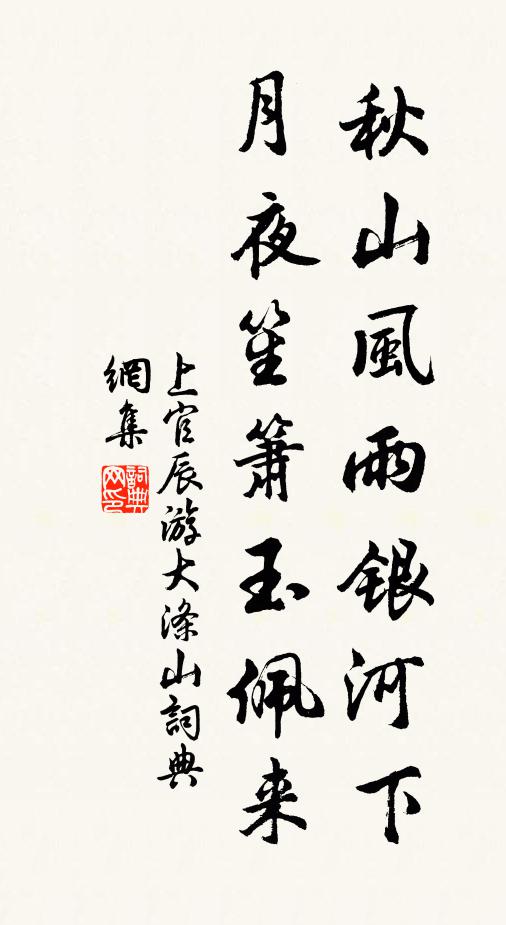 秋山風雨銀河下
月夜笙簫玉佩来
上官辰游大滌山詞典
網集
詞典網印